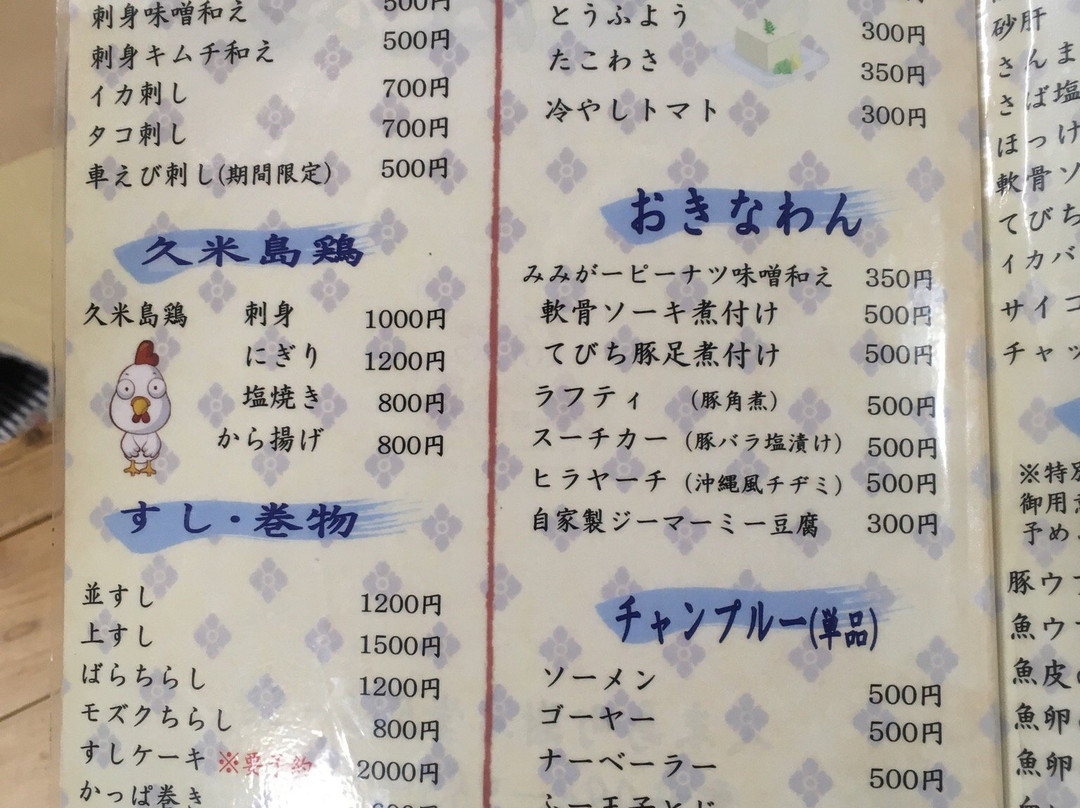 刺身味噌和え 500円
刺身キムチ和え 500円
イカ刺し 700円
タコ刺し 700円
車えび刺し(期間限定) 500円
久米島鶏
久米島鶏 刺身 1000円
にぎり 1200円
塩焼き 800円
から揚げ 800円
すし・巻物
並すし 1200円
上すし 1500円
ばらちらし 1200円
モズクちらし 800円
すしケーキ ※要予約 2000円
かっぱ巻き
とうふよう 300円
たこわさ 350円
冷やしトマト 300円
おきなわん
みみがーピーナツ味噌和え 350円
軟骨ソーキ煮付け 500円
てびち豚足煮付け 500円
ラフティ (豚角煮) 500円
スーチカー (豚バラ塩漬け) 500円
ヒラヤーチ (沖縄風チヂミ) 500円
自家製ジーマーミー豆腐 300円
チャンプルー(単品)
ソーメン 500円
ゴーヤー 500円
ナーベーラー 500円
砂肝
さんま
さば塩
ほっけ
軟骨ソ
てびち
イカバ
サイコ
チャッ
※特別
御用意
予め
豚ウ
魚ウ
魚皮
魚卵
魚卵